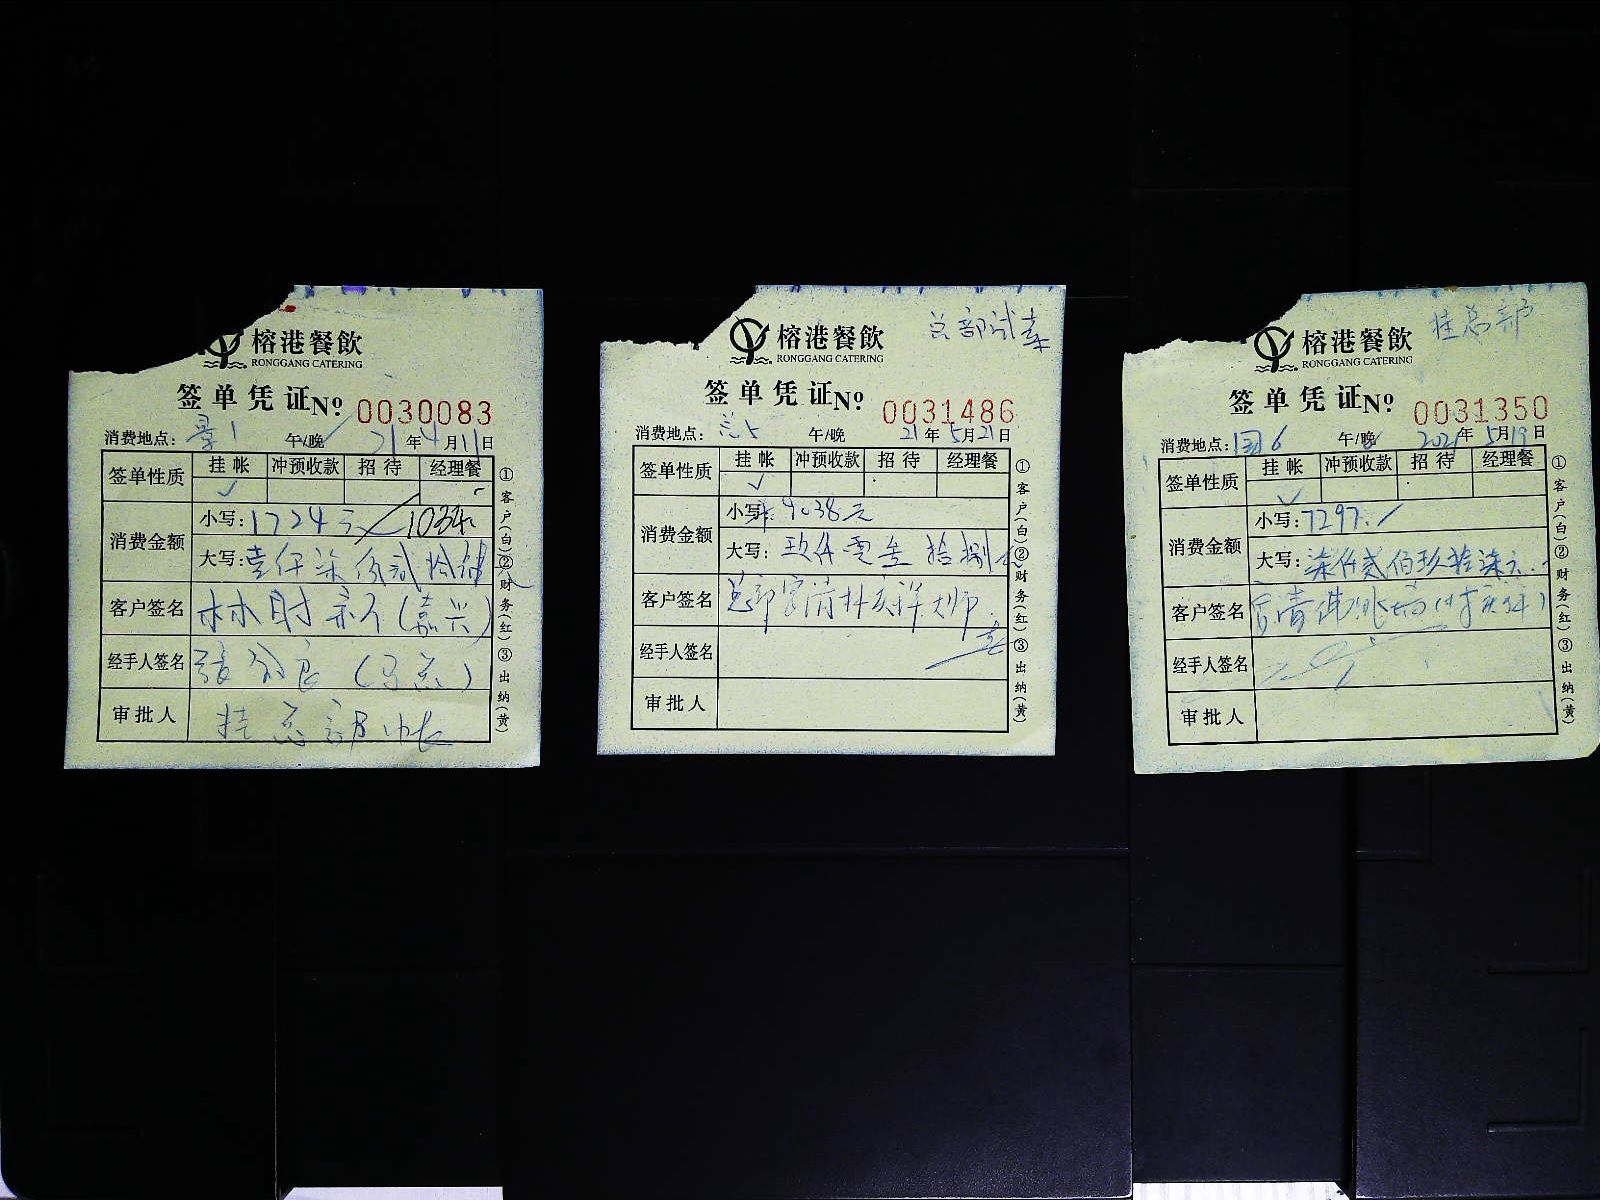 榕港餐飲
RONGGANG CATERING
签单凭证 № 0030083
消费地点: 景1 午/晚 21年4月11日
签单性质 挂帐 冲预收款 招待 经理餐
✓
消费金额 小写: 1724元 1034元
大写: 壹仟柒佰贰拾肆
客户签名 (嘉兴)
经手人签名
审批人 挂总部
①客户(白)②财务(红)③出纳(黄)
总部试菜
榕港餐飲
RONGGANG CATERING
签单凭证 № 0031486
消费地点: 午/晚 21年5月21日
签单性质 挂帐 冲预收款 招待 经理餐
✓
消费金额 小写: 9038元
大写: 玖仟零叁拾捌
客户签名 总部宴请朴庆祥大师
经手人签名
审批人
①客户(白)②财务(红)③出纳(黄)
挂总部
榕港餐飲
RONGGANG CATERING
签单凭证 № 0031350
消费地点: 国6 午/晚 2021年5月19日
签单性质 挂帐 冲预收款 招待 经理餐
✓
消费金额 小写: 7297.
大写: 柒仟贰佰玖拾柒元
客户签名
经手人签名
审批人
①客户(白)②财务(红)③出纳(黄)